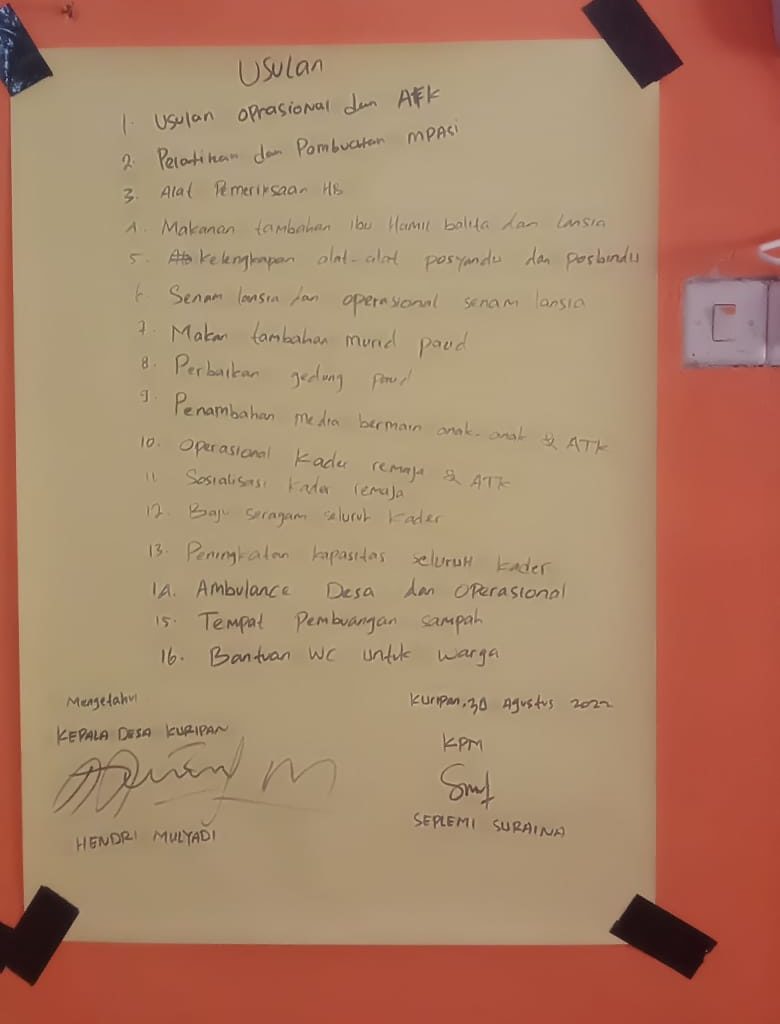 Usulan
1. Usulan oprasional dan ATK
2. Pelatihan dan Pembuatan MPASi
3. Alat Pemeriksaan HB
4. Makanan tambahan ibu Hamil balita dan lansia
5. kelengkapan alat-alat posyandu dan posbindu
6. Senam lansia dan operasional senam lansia
7. Makan tambahan murid paud
8. Perbaikan gedung paud
9. Penambahan media bermain anak-anak & ATK
10. Operasional kader remaja & ATK
11. Sosialisasi kader remaja
12. Baju seragam seluruh kader
13. Peningkatan kapasitas seluruh kader
14. Ambulance Desa dan Operasional
15. Tempat Pembuangan sampah
16. Bantuan WC untuk warga
Mengetahui
KEPALA DESA KURIPAN
HENDRI MULYADI
Kuripan, 30 Agustus 2022
KPM
SEPLEMI SURAINA